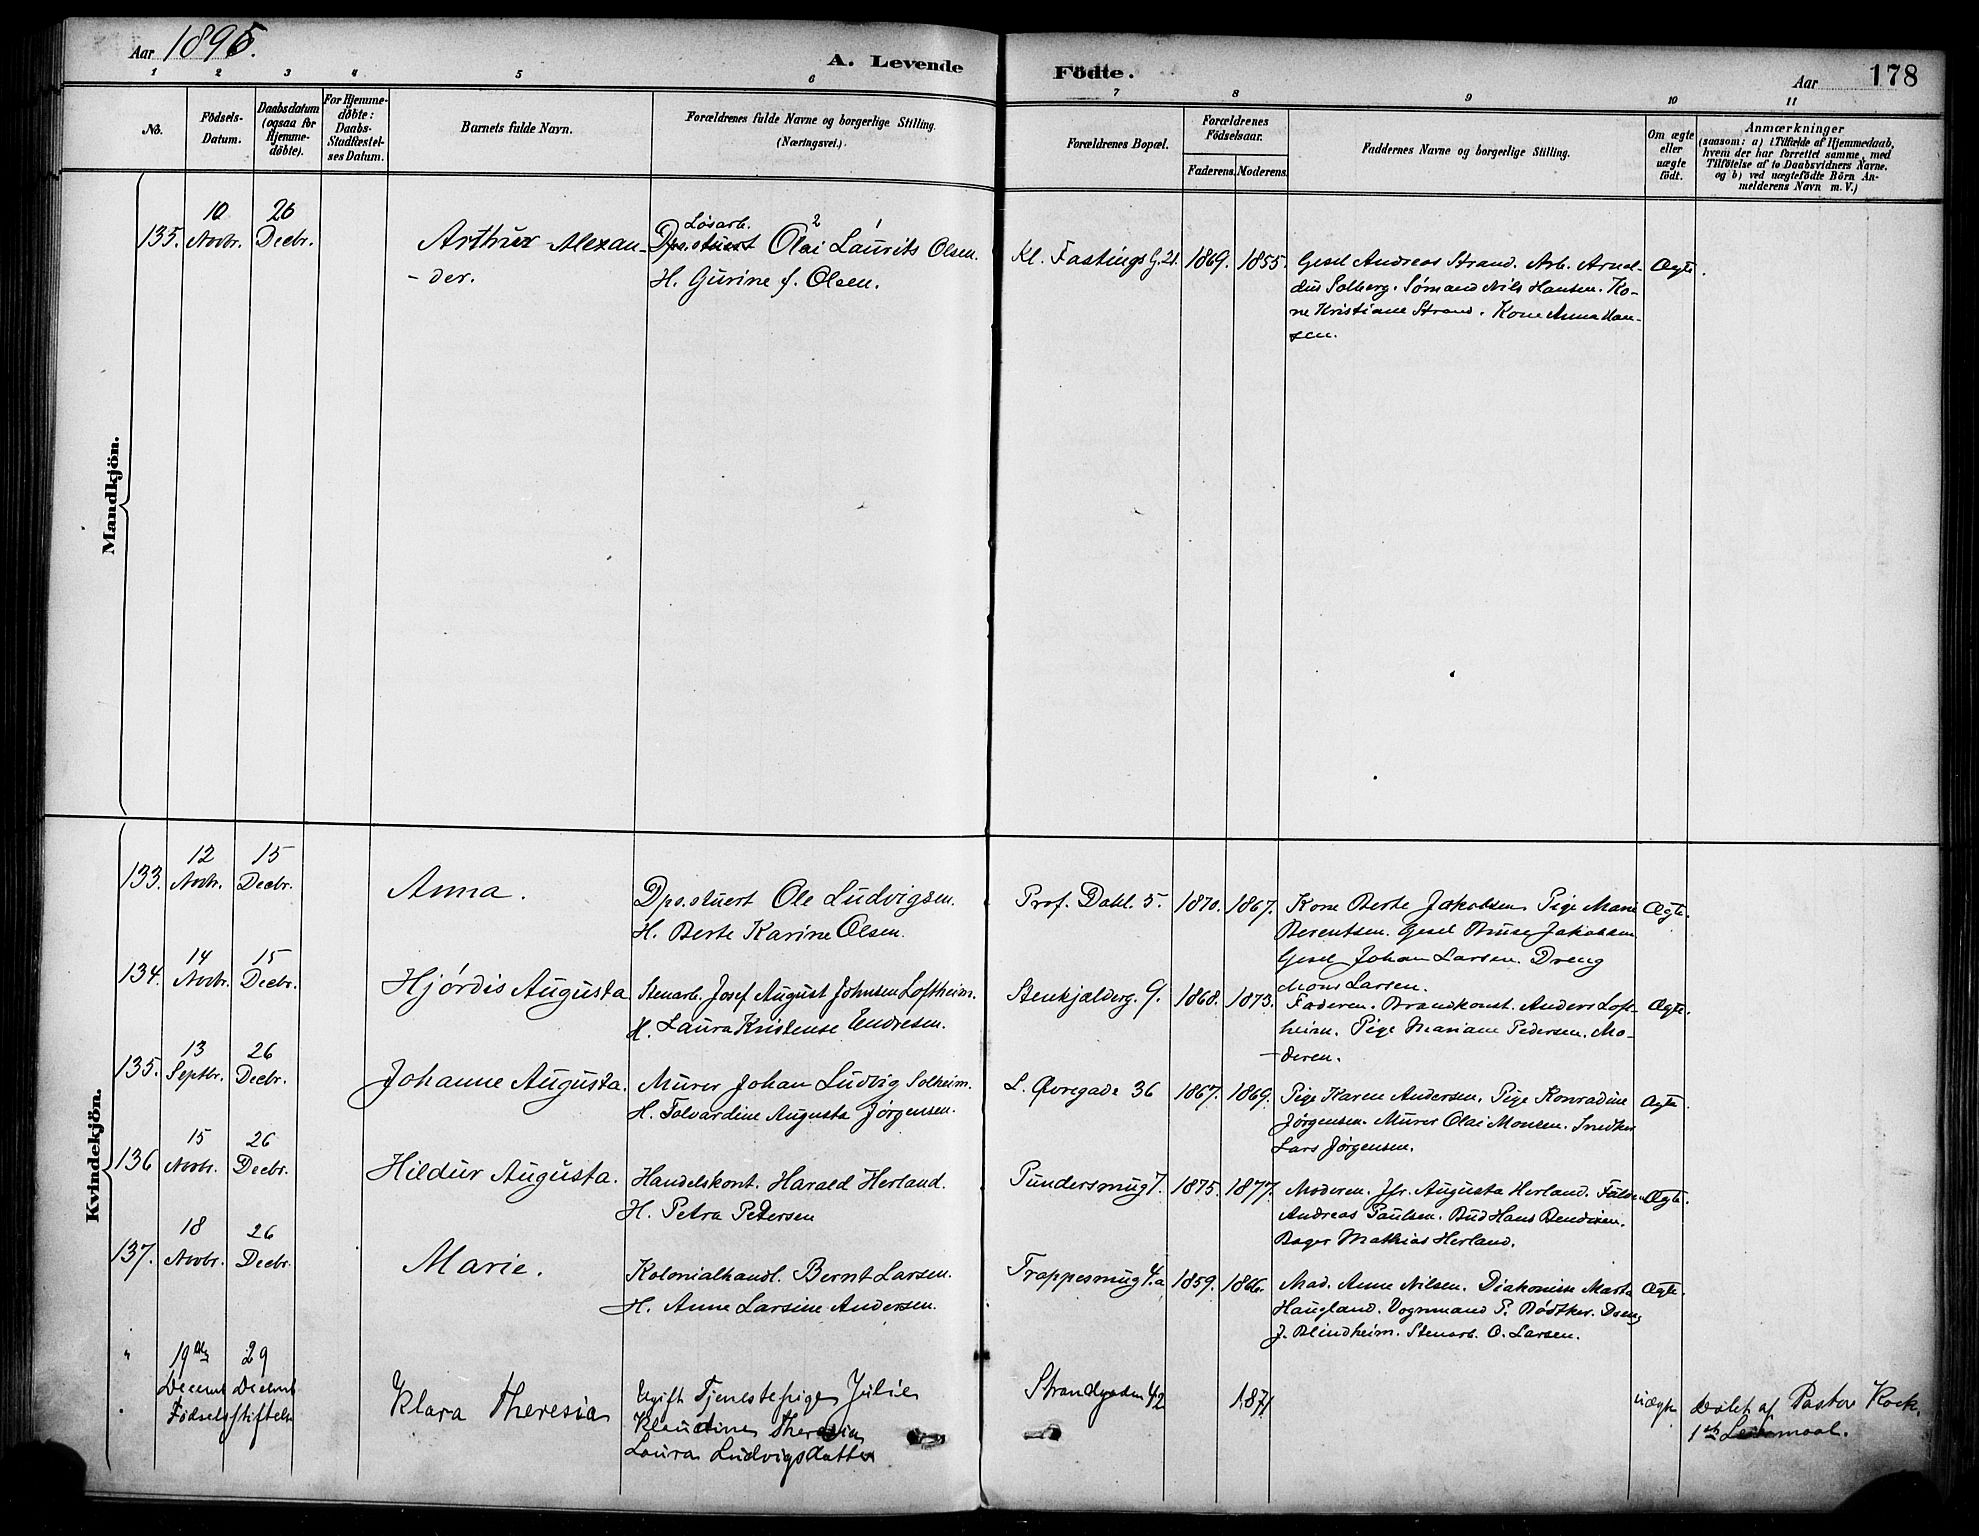 Aar 1895.
A. Levende Födte.
Aar 178
1 2 3 4 5 6 7 8 9 10 11
No.
Födsels-Datum.
Daabsdatum (ogsaa for Hjemme-döbte).
For Hjemme-döbte: Daabs-Stadfæstel-ses Datum.
Barnets fulde Navn.
Forældrenes fulde Navne og borgerlige Stilling.
(Næringsvei.)
Forældrenes Bopæl.
Forældrenes Födselsaar.
Faderens. Moderens.
Faddernes Navne og borgerlige Stilling.
Om ægte eller uægte födt.
Anmærkninger
(saasom: a) i Tilfælde af Hjemmedaab,
hvem der har forrettet samme, med
Tilföielse af to Daabsvidners Navne,
og b) ved uægtefödte Börn An-
melderens Navn m. V.)
Mandkjön.
135. 10 Novbr. 26 Decbr. Arthur Alexan-
-der.
Løsarb.
Dps.stuert Olai Laurits Olsen.
H. Gurine f. Olsen.
Kl. Fastings G. 21. 1869. 1855.
Gesel Andreas Strand. Arb. Arnol-
dus Solberg. Sømand Nils Hansen. Ko-
ne Kristiane Strand. Kone Anna Han-
sen.
Ægte.
Kvindekjön.
133. 12 Novbr. 15 Decbr. Anna.
Dps.stuert Ole Ludvigsen.
H. Berte Karine Olsen.
Prof. Dahl. 5. 1870. 1867.
Kone Berte Jakobsen Pige Marie
Berentsen. Gesel Jakobsen
Gesel Johan Larsen. Dreng
Mons Larsen.
Ægte.
134. 14 Novbr. 15 Decbr. Hjördis Augusta
Stenarb. Josef August Johnsen Loftheim.
H. Laura Kristense Endresen.
Stenkjelderg. 9. 1868. 1873.
Faderen. Brandkonst. Anders Loft-
heim. Pige Mariane Pedersen. Mo-
-deren.
Ægte.
135. 13 Septbr. 26 Decbr. Johanne Augusta.
Murer Johan Ludvig Solheim.
H. Tolvardine Augusta Jørgensen.
L. Øvregade 36 1867. 1869.
Pige Karen Andersen. Pige Konradine
Jørgensen. Murer Olai Monsen. Snedker
Lars Jørgensen.
Ægte.
136 15 Novbr. 26 Decbr. Hildur Augusta.
Handelskont. Harald Herland.
H. Petra Petersen
Pundersmug 7. 1875. 1877.
Moderen. Jfr. Augusta Herland.
Andreas Paulsen. Bud Hans Bendixen.
Bager Mathias Herland.
Ægte.
137. 18 Novbr. 26 Decbr. Marie.
Kolonialhandl. Bernt Larsen.
H. Anne Larsine Andersen.
Trappesmug 4.a 1859. 1866.
Mad. Anne Nilsen. Diakonisse Marta
Haugland. Vognmand P. Bødtker. Dreng
J. Blindheim. Stenarb. O. Larsen.
Ægte.
" 19de Decemb 29 Decemb
Fødselsstiftelsen
Klara Theresia
Ugift Tjenestepige Julie
Klaudine Theresia
Laura Ludvigsdatter
Strandgaden 42 1871
uægte
Døbt af Pastor Kock.
1ste Leiermaal.